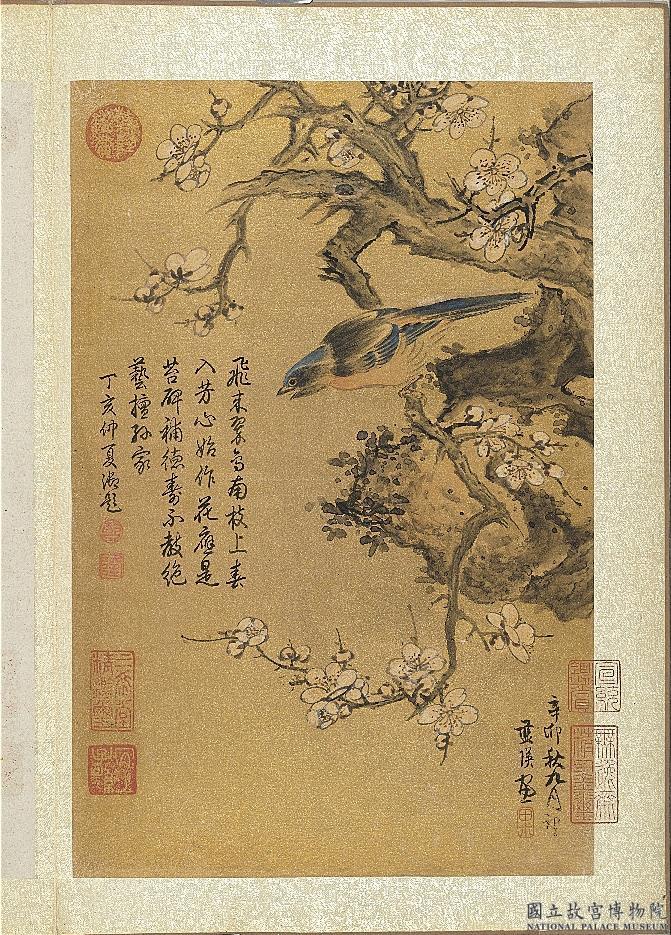 飛來翠鳥南枝上春
入芳心始作花應是
苔碑補德壽不教絕
藝擅孫家
丁亥仲夏御題
辛卯秋九月
藍瑛畫
國立故宮博物院
NATIONAL PALACE MUSEUM